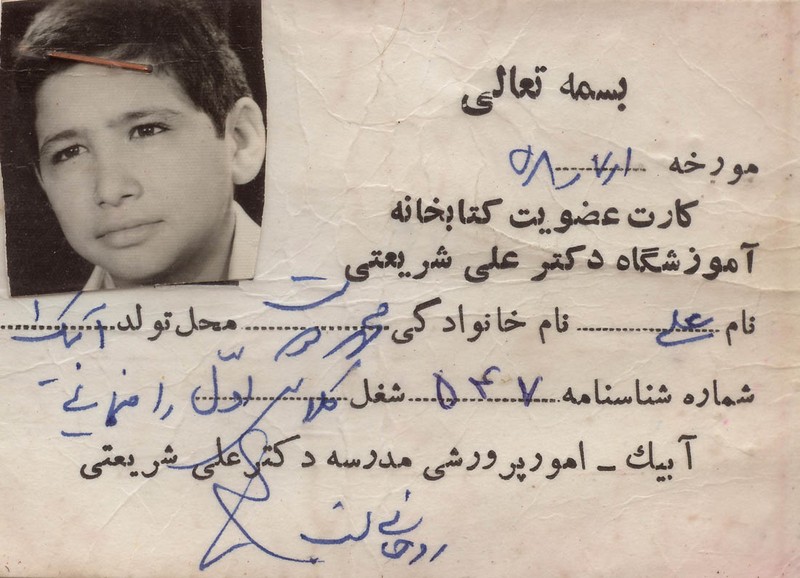 بسمه تعالی
مورخه ۵۸/۷/۱
کارت عضویت کتابخانه
آموزشگاه دکتر علی شریعتی
نام علی نام خانوادگی محل تولد آبیک
شماره شناسنامه ۵۴۷ شغل کلاس اوّل راهنمائی
آبیك ـ امور پرورشی مدرسه دکتر علی شریعتی